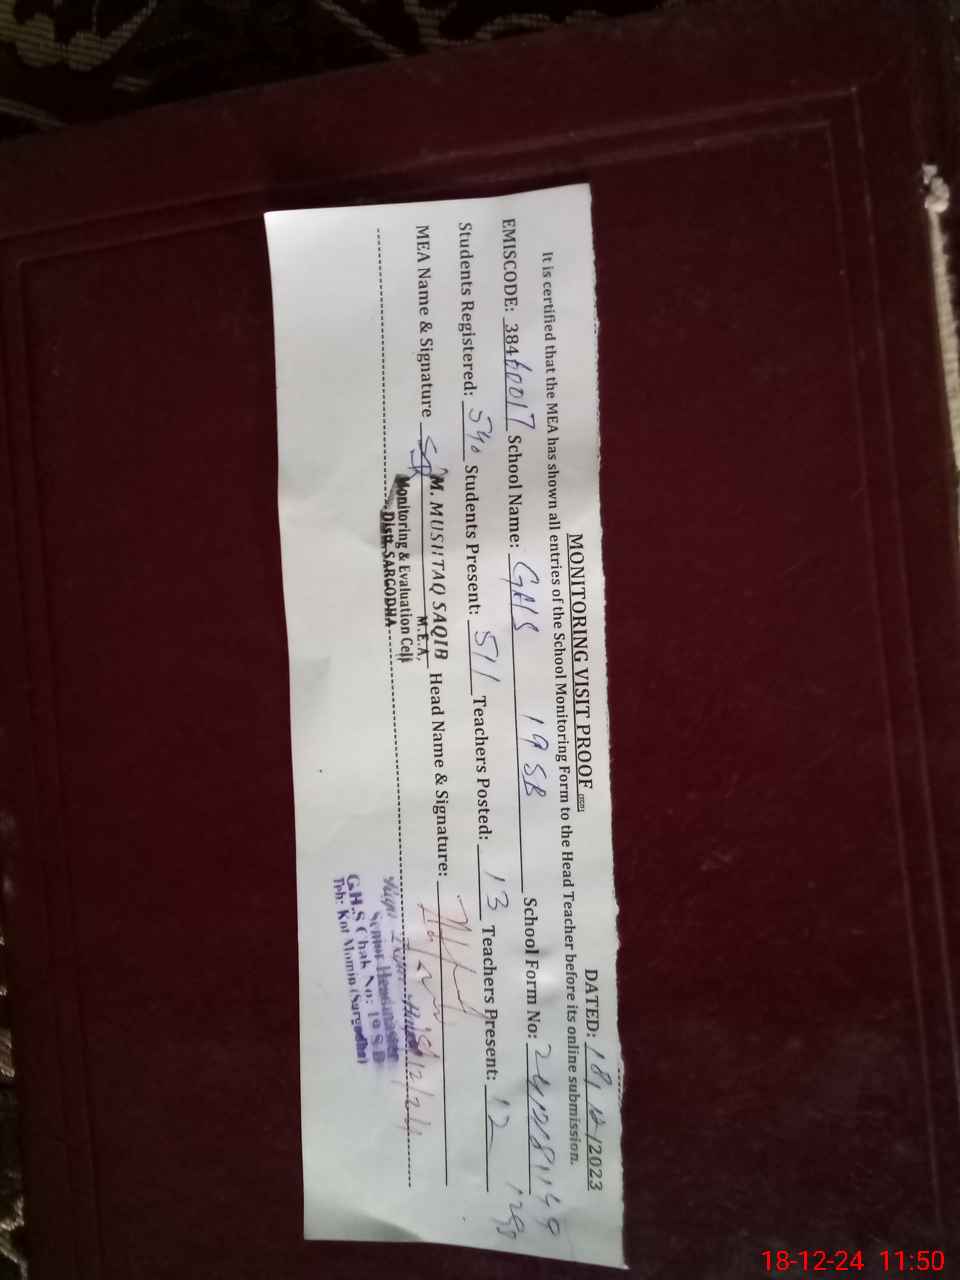 MONITORING VISIT PROOF
DATED: 18/12/2023
It is certified that the MEA has shown all entries of the School Monitoring Form to the Head Teacher before its online submission.
EMISCODE: 38460017 School Name: GHS 19 SB School Form No: 2412181149
Students Registered: 540 Students Present: 511 Teachers Posted: 13 Teachers Present: 12
MEA Name & Signature M. MUSHTAQ SAQIB Head Name & Signature:
M.E.A,
Monitoring & Evaluation Cell
Distt. SARGODHA
Senior Headmaster
G.H.S Chak No: 19 S.B
Teh: Kot Momin (Sargodha)
18-12-24 11:50